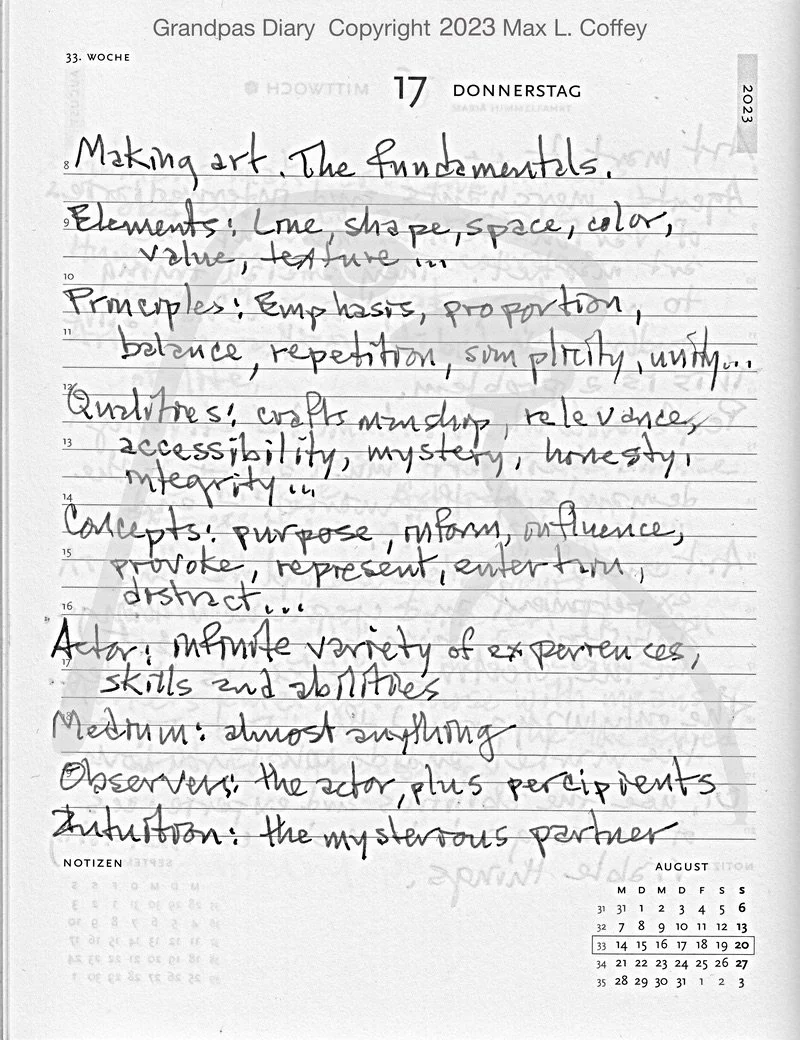 Grandpas Diary Copyright 2023 Max L. Coffey
33. WOCHE
17 DONNERSTAG
2023
8 Making art. The fundamentals.
9 Elements: Line, shape, space, color,
value, texture ...
10
Principles: Emphasis, proportion,
11 balance, repetition, simplicity, unity...
12
Qualities: craftsmanship, relevance,
13 accessibility, mystery, honesty,
integrity...
14
Concepts: purpose, inform, influence,
15 provoke, represent, entertain,
distract...
16
Actor: infinite variety of experiences,
17 skills and abilities
Medium: almost anything
Observers: the actor, plus percipients
Intuition: the mysterious partner
NOTIZEN
AUGUST
M D M D F S S
31 31 1 2 3 4 5 6
32 7 8 9 10 11 12 13
33 14 15 16 17 18 19 20
34 21 22 23 24 25 26 27
35 28 29 30 31 1 2 3